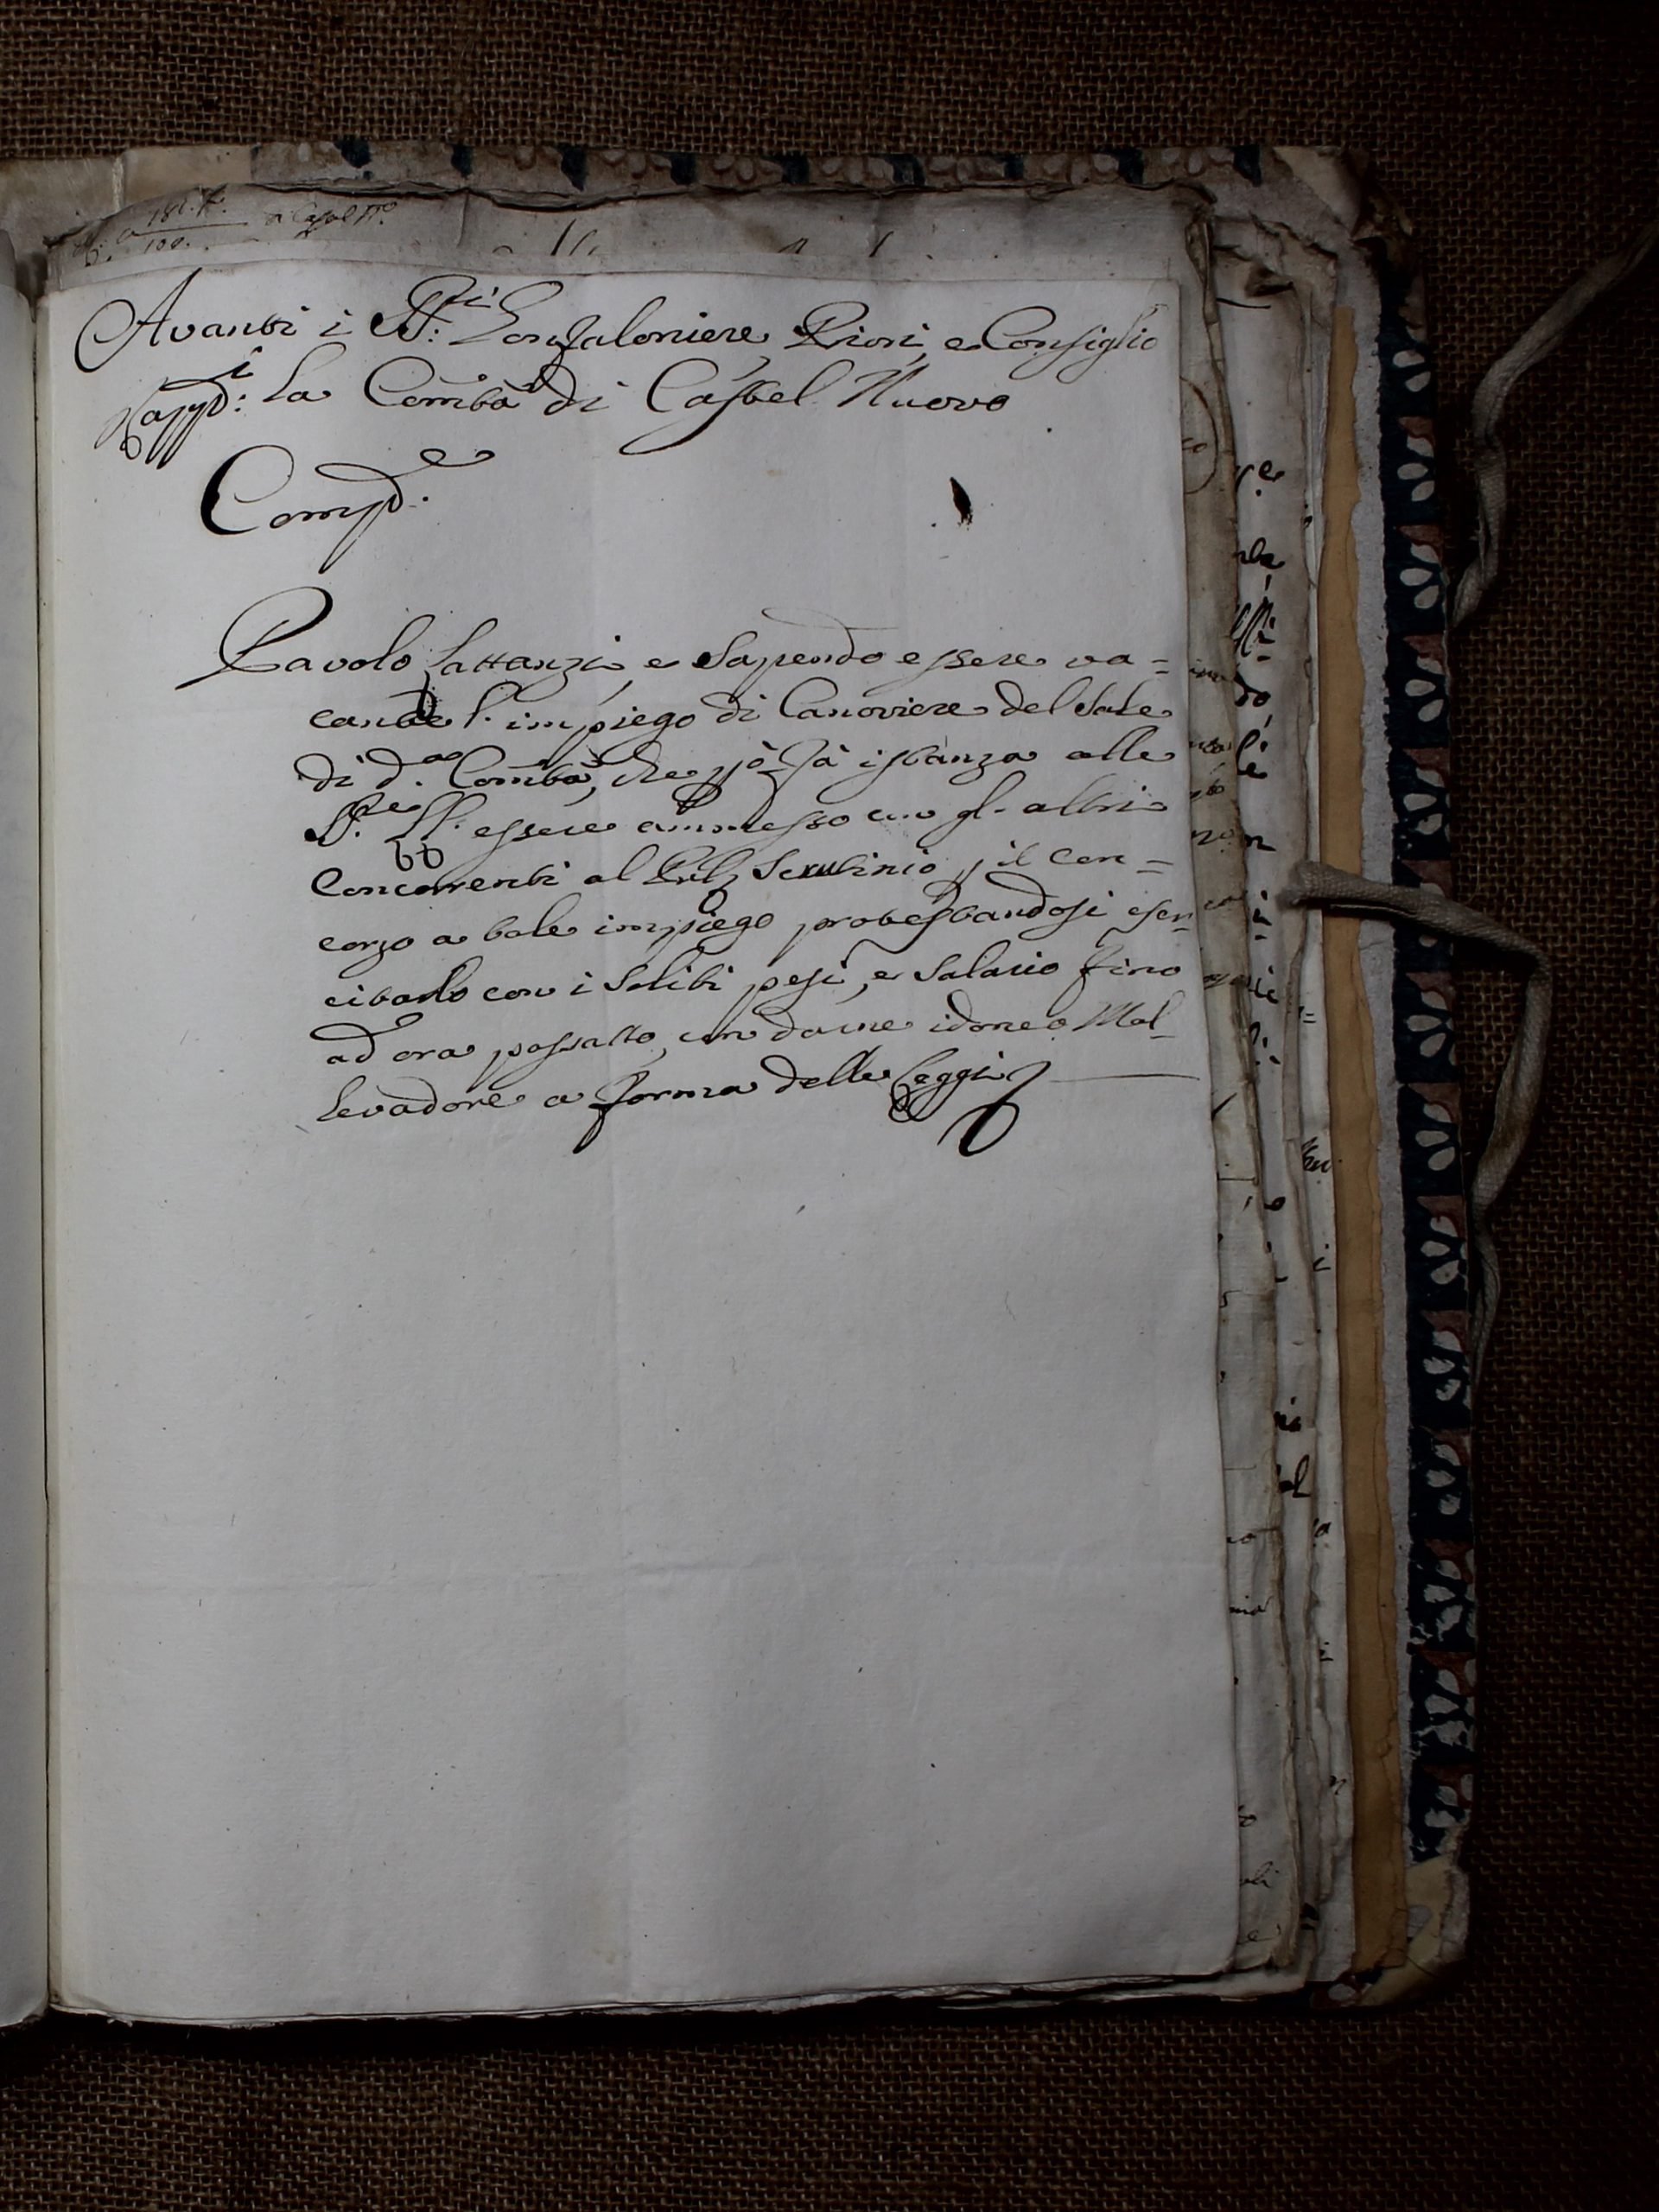 Avanti i SS:ri Gonfaloniere, Priori, e Consiglio
Rappti: la Com̃tà di Castel Nuovo
Compe:
Pavolo Lattanzi, e Sapendo essere va=
cante l'impiego di Canoviere del Sale
di d.a Com̃tà, che p̀ò fà istanza alle
S.re LL. essere ammesso con gl'altri
Concorrenti al Pub Scrutinio p il con=
corzo a tale impiego protestandosi eser=
citarlo con i soliti pesi, e Salario fino
ad ora passatto, con darne idoneo Mal=
levadore a forma delle Leggi